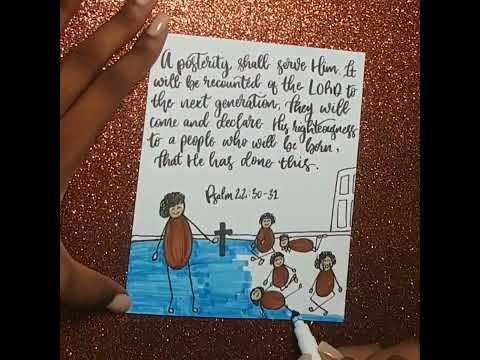 A posterity shall serve Him. It
will be recounted of the LORD to
the next generation, They will
come and declare His righteousness
to a people who will be born,
that He has done this.
Psalm 22:30-31